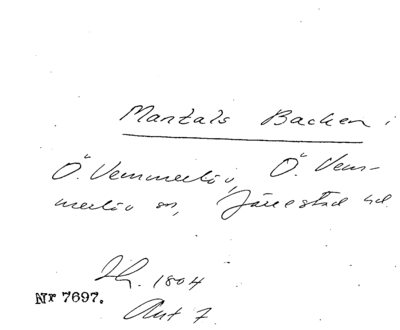 Mantals Backen i
Ö. Vemmerlöv, Ö. Vem-
merlöv sn, Järrestad hd.
1804
Nr 7697.
Akt 7